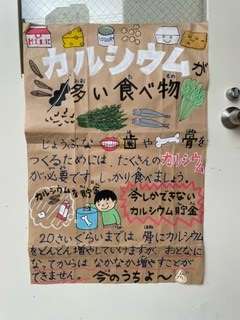 カルシウムが
多い食べ物
おお た もの
じょうぶな 歯や骨を
つくるためには、たくさんのカルシウム
が必要です。しっかり食べましょう。
カルシウムを貯金
今しかできない
カルシウム貯金
20さいぐらいまでは、骨にカルシウム
をどんどん増やしていけますが、おとなに
なってからは なかなか増やすことが
できません。 今のうちよ〜